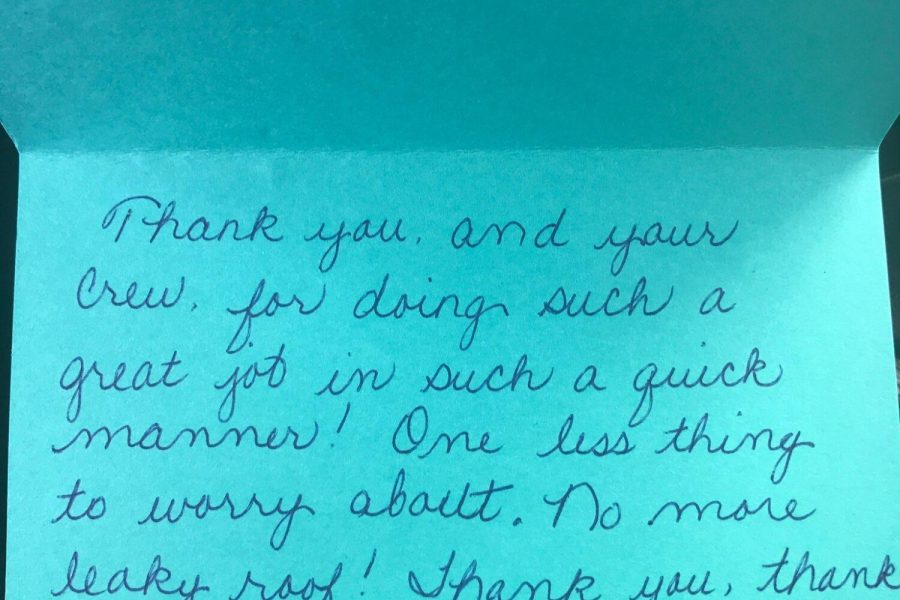 Thank you, and your
crew, for doing such a
great job in such a quick
manner! One less thing
to worry about. No more
leaky roof! Thank you, thank